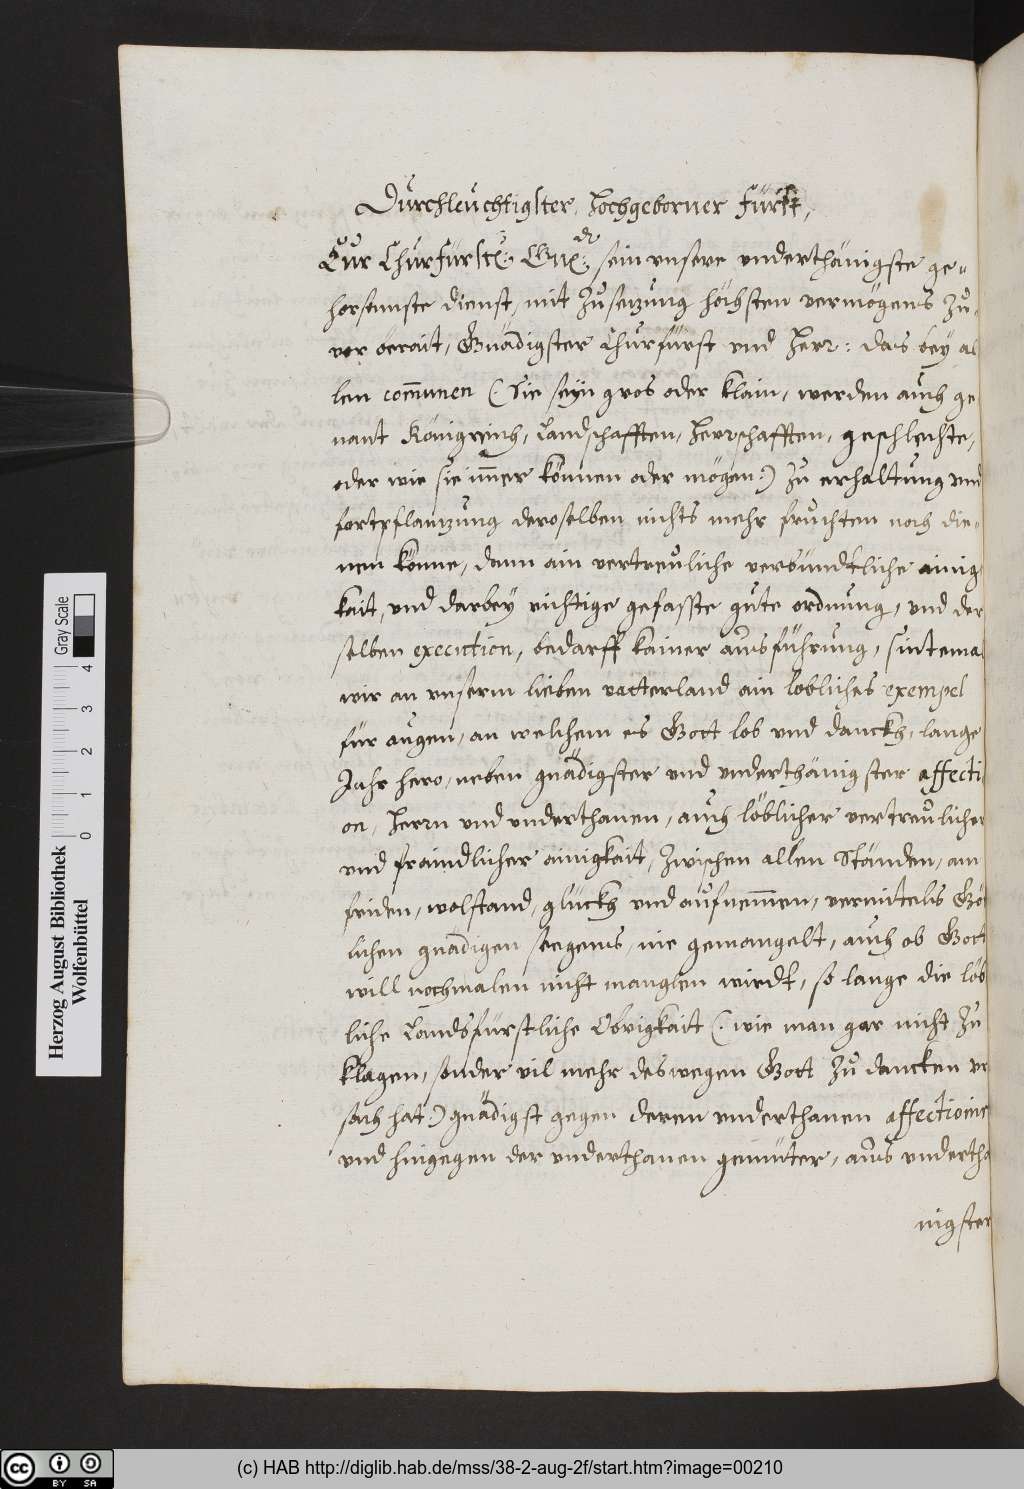 Durchleuchtigster, Hochgeborner Fürst,
Eur Churfürstl: Gn: sein vnsere vnderthänigste ge-
horsamste dienst, mit Zusezung höchsten vermögens zu-
vor berait, Gnädigster Churfürst vnd Herr: das bey al
len com̄unen (: Sie seyn gros oder klain, werden auch ge
nant Königreich, Landschafften, Herrschafften, geschlechte,
oder wie sie im̄er können oder mögen:) zu erhaltung vnd
fortpflanzung deroselben nichts mehr fruchten noch die-
nen könne, dann ain vertreuliche verbündtliche ainig
kait, vnd darbey richtige gefasste gute ordnung, vnd der
selben execution, bedarff kainer ausführung, sintemal
wir an vnserm lieben vatterland ain lobliches exempel
für augen, an welchem es Gott lob vnd danckh, lange
Jahr hero, neben gnädigster vnd vnderthänigster affecti
on, Herrn vnd vnderthanen, auch löblicher vertreulicher
vnd fraindlicher ainigkait, zwischen allen Ständen, am
friden, wolstand, glückh vnd aufnem̄en, vermitels Göt
lichen gnädigen seegens, nie gemangelt, auch ob Gott
will nochmalen nicht manglen wirdt, so lange die löb
liche Landsfürstliche Obrigkait (: wie man gar nicht zu
klagen, sonder vil mehr deswegen Gott zu dancken vr
sach hat:) gnädigst gegen deren vnderthanen affectionir
vnd hingegen der vnderthanen gemüter, aus vndertha
nigster
Gray Scale
4 3 2 1 0
Herzog August Bibliothek
Wolfenbüttel
BY SA
(c) HAB http://diglib.hab.de/mss/38-2-aug-2f/start.htm?image=00210